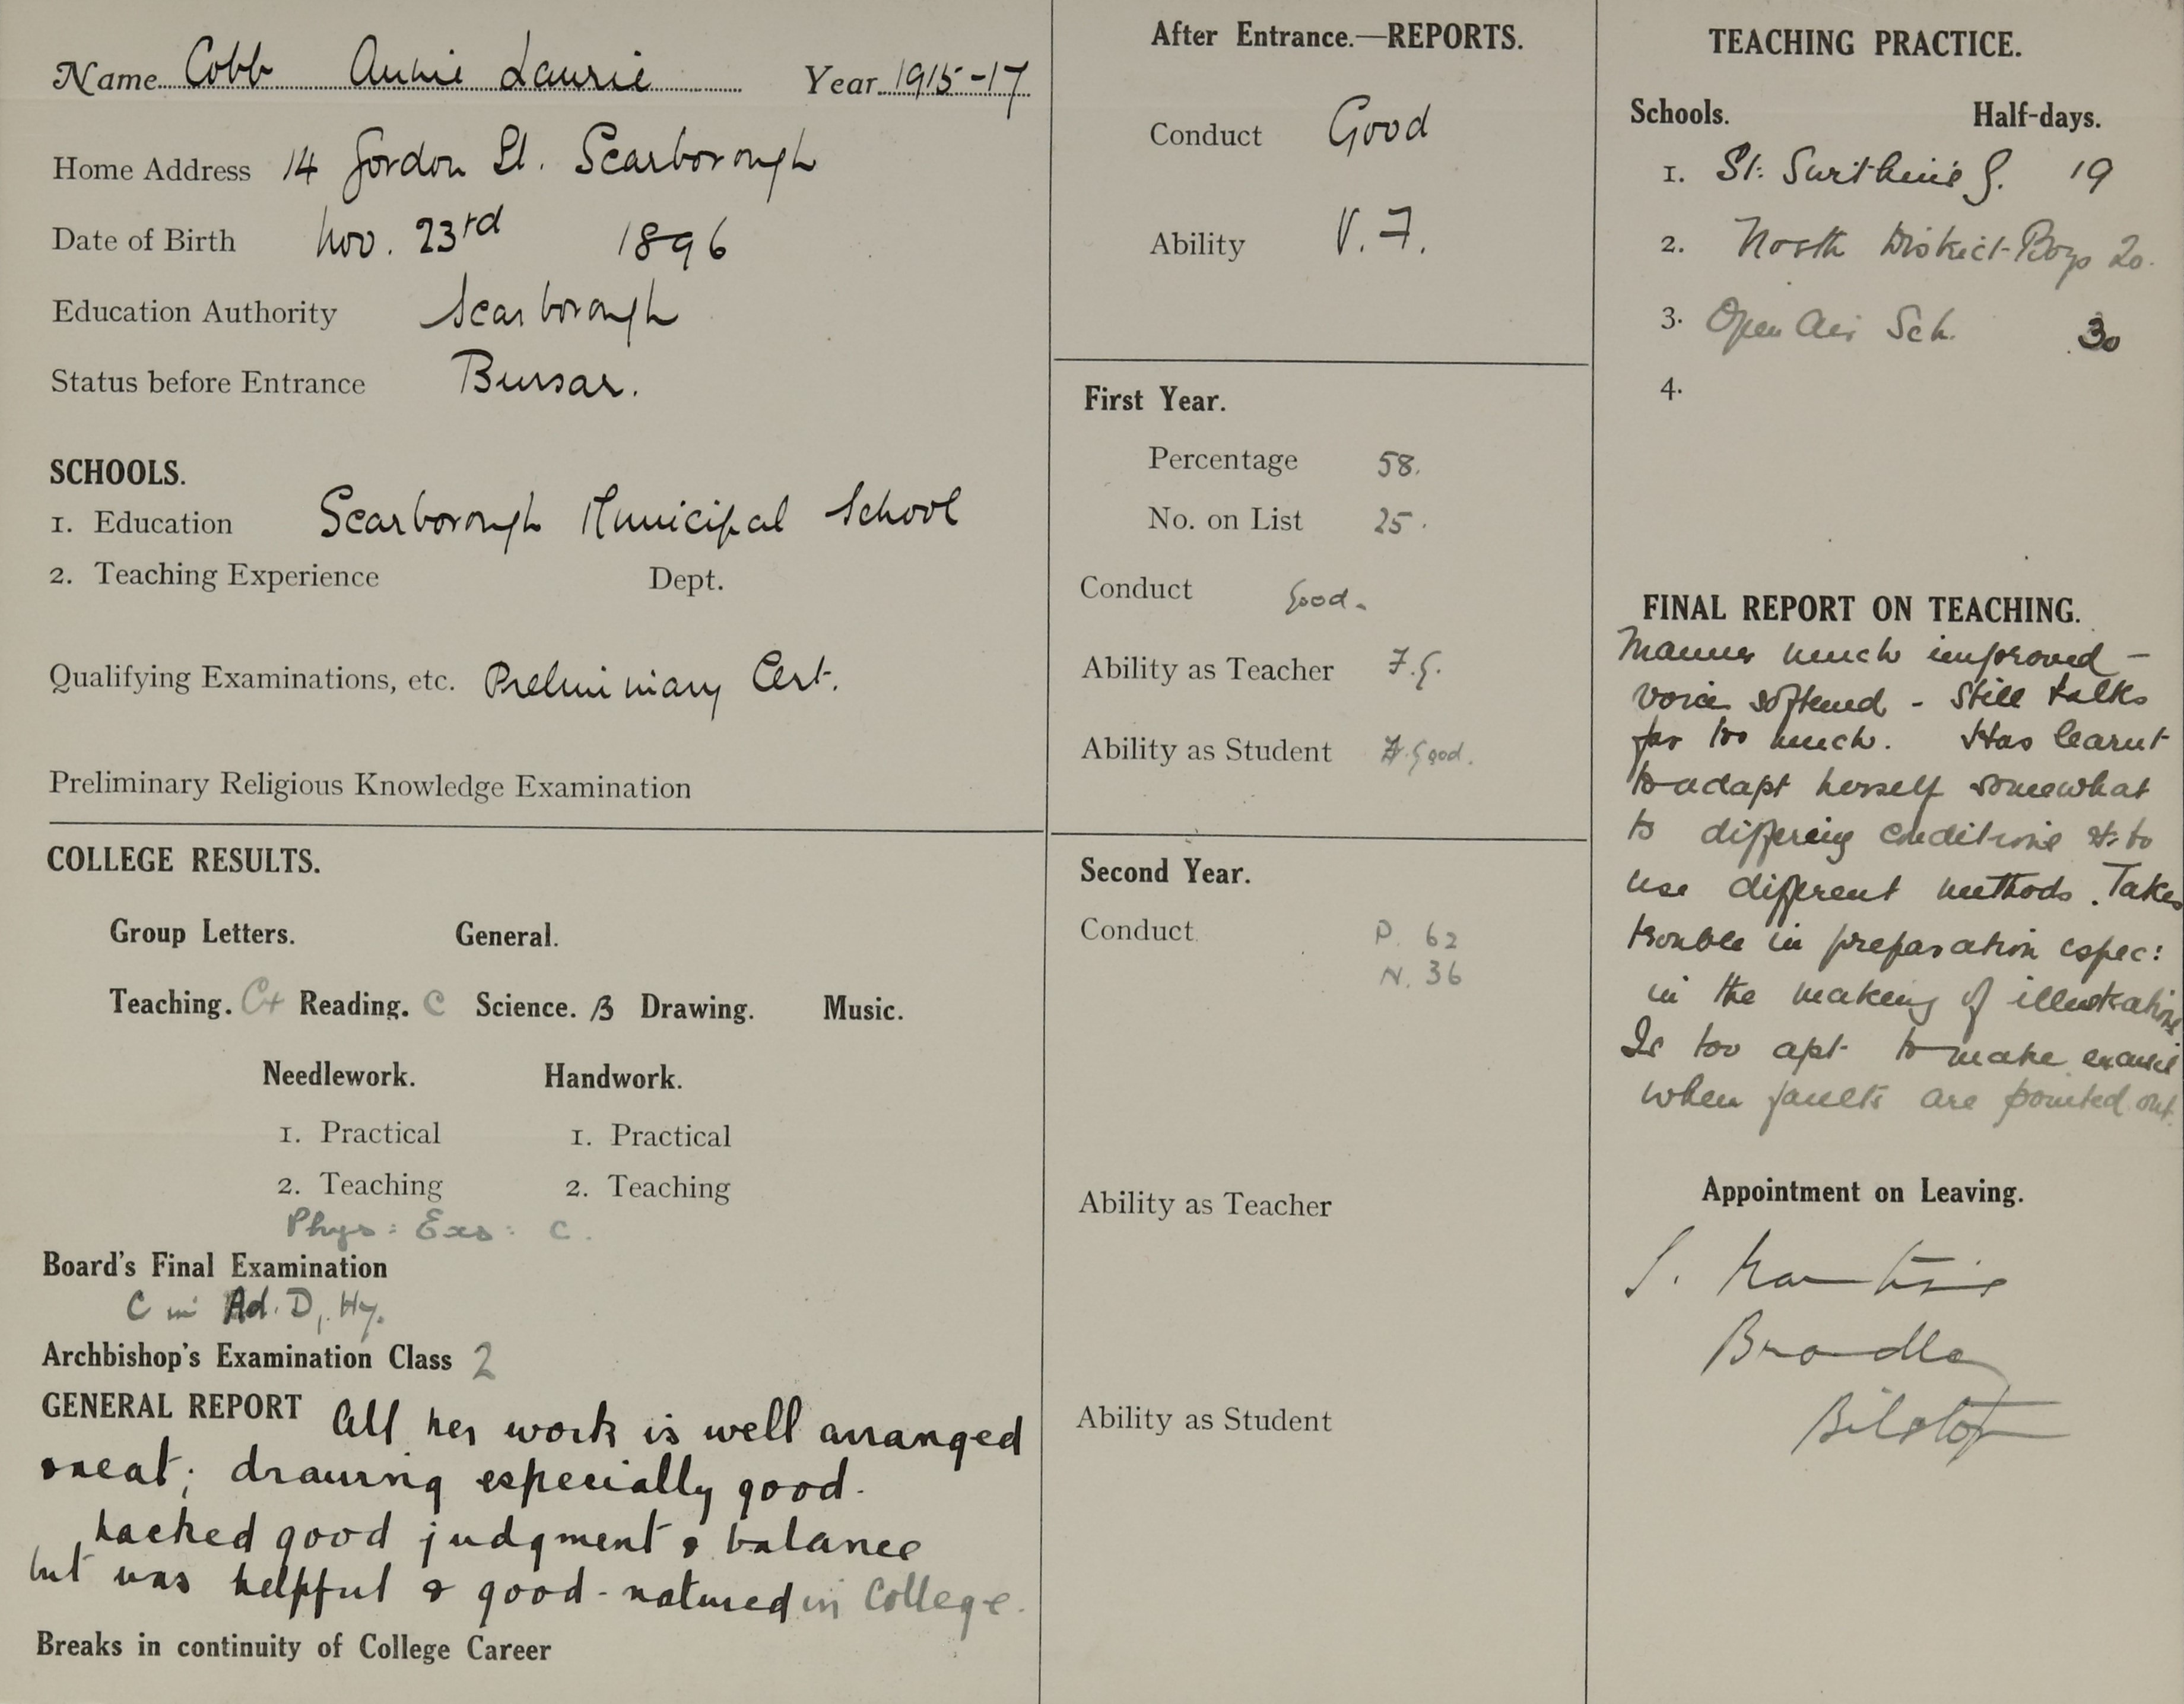 Name Cobb Annie Laurie Year 1915-17
Home Address 14 Gordon St. Scarborough
Date of Birth Nov. 23rd 1896
Education Authority Scarborough
Status before Entrance Bursar.
SCHOOLS.
1. Education Scarborough Municipal School
2. Teaching Experience Dept.
Qualifying Examinations, etc. Preliminary Cert.
Preliminary Religious Knowledge Examination
COLLEGE RESULTS.
Group Letters. General.
Teaching. C+ Reading. C Science. B Drawing. Music.
Needlework. Handwork.
1. Practical 1. Practical
2. Teaching 2. Teaching
Phys: Exs: C.
Board's Final Examination
C in Ad. D, Hy.
Archbishop's Examination Class 2
GENERAL REPORT All her work is well arranged
& neat; drawing especially good.
Lacked good judgment & balance
but was helpful & good-natured in College.
Breaks in continuity of College Career
After Entrance.—REPORTS.
Conduct Good
Ability V. F.
First Year.
Percentage 58.
No. on List 25.
Conduct Good.
Ability as Teacher F.G.
Ability as Student F. Good.
Second Year.
Conduct P. 62
N. 36
Ability as Teacher
Ability as Student
TEACHING PRACTICE.
Schools. Half-days.
1. St. Swithin's G. 19
2. North District Boys 20.
3. Open Air Sch. 30
4.
FINAL REPORT ON TEACHING.
Manner much improved -
voice softened - Still talks
far too much. Has learnt
to adapt herself somewhat
to differing conditions & to
use different methods. Takes
trouble in preparation espec:
in the making of illustrations
Is too apt to make excuses
when faults are pointed out.
Appointment on Leaving.
S. Martin's
Bradley
Bilston